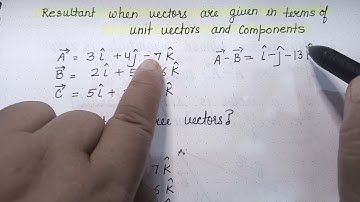 Resultant when vectors are given in terms of
unit vectors and components
A⃗ = 3î + 4ĵ - 7k̂
A⃗ - B⃗ = î - ĵ - 13
B⃗ = 2î + 5 6k̂
C⃗ = 5î + k̂
vectors?
7k̂
k̂